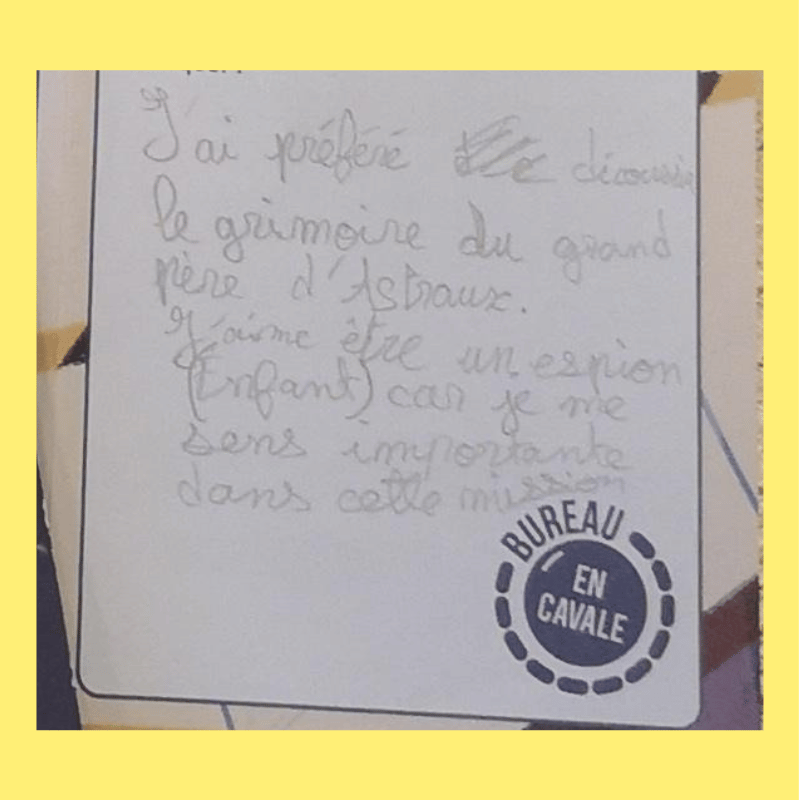 J'ai préféré découvrir
le grimoire du grand
père d'Astraux.
J'aime être un espion
(Enfant) car je me
sens importante
dans cette mission
BUREAU
EN
CAVALE